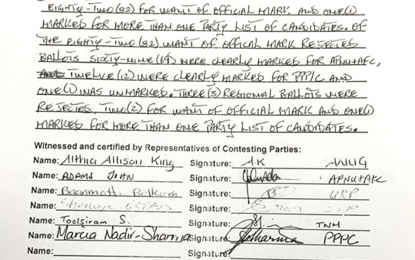 EIGHTY-TWO (82) FOR WANT OF OFFICIAL MARK AND ONE (1)
MARKED FOR MORE THAN ONE PARTY LIST OF CANDIDATES. OF
THE EIGHTY-TWO (82) WANT OF OFFICAL MARK REJECTED
BALLOTS SIXTY-NINE (69) WERE CLEARLY MARKED FOR APNU+AFC,
TWELVE (12) WERE CLEARLY MARKED FOR PPPC AND
ONE (1) WAS UNMARKED. THREE (3) REGIONAL BALLOTS WERE
REJECTED, TWO (2) FOR WANT OF OFFICIAL MARK AND ONE (1)
MARKED FOR MORE THAN ONE PARTY LIST OF CANDIDATES.
Witnessed and certified by Representatives of Contesting Parties:
Name: Althia Allison King Signature: AK ANUG
Name: ADAMS JOHN Signature: APNU+AFC
Name: Signature: URP
Name: Signature:
Name: Toolsiram S. Signature: TNM
Name: Marcia Nadir-Sharma Signature: PPPC
Name: Signature: